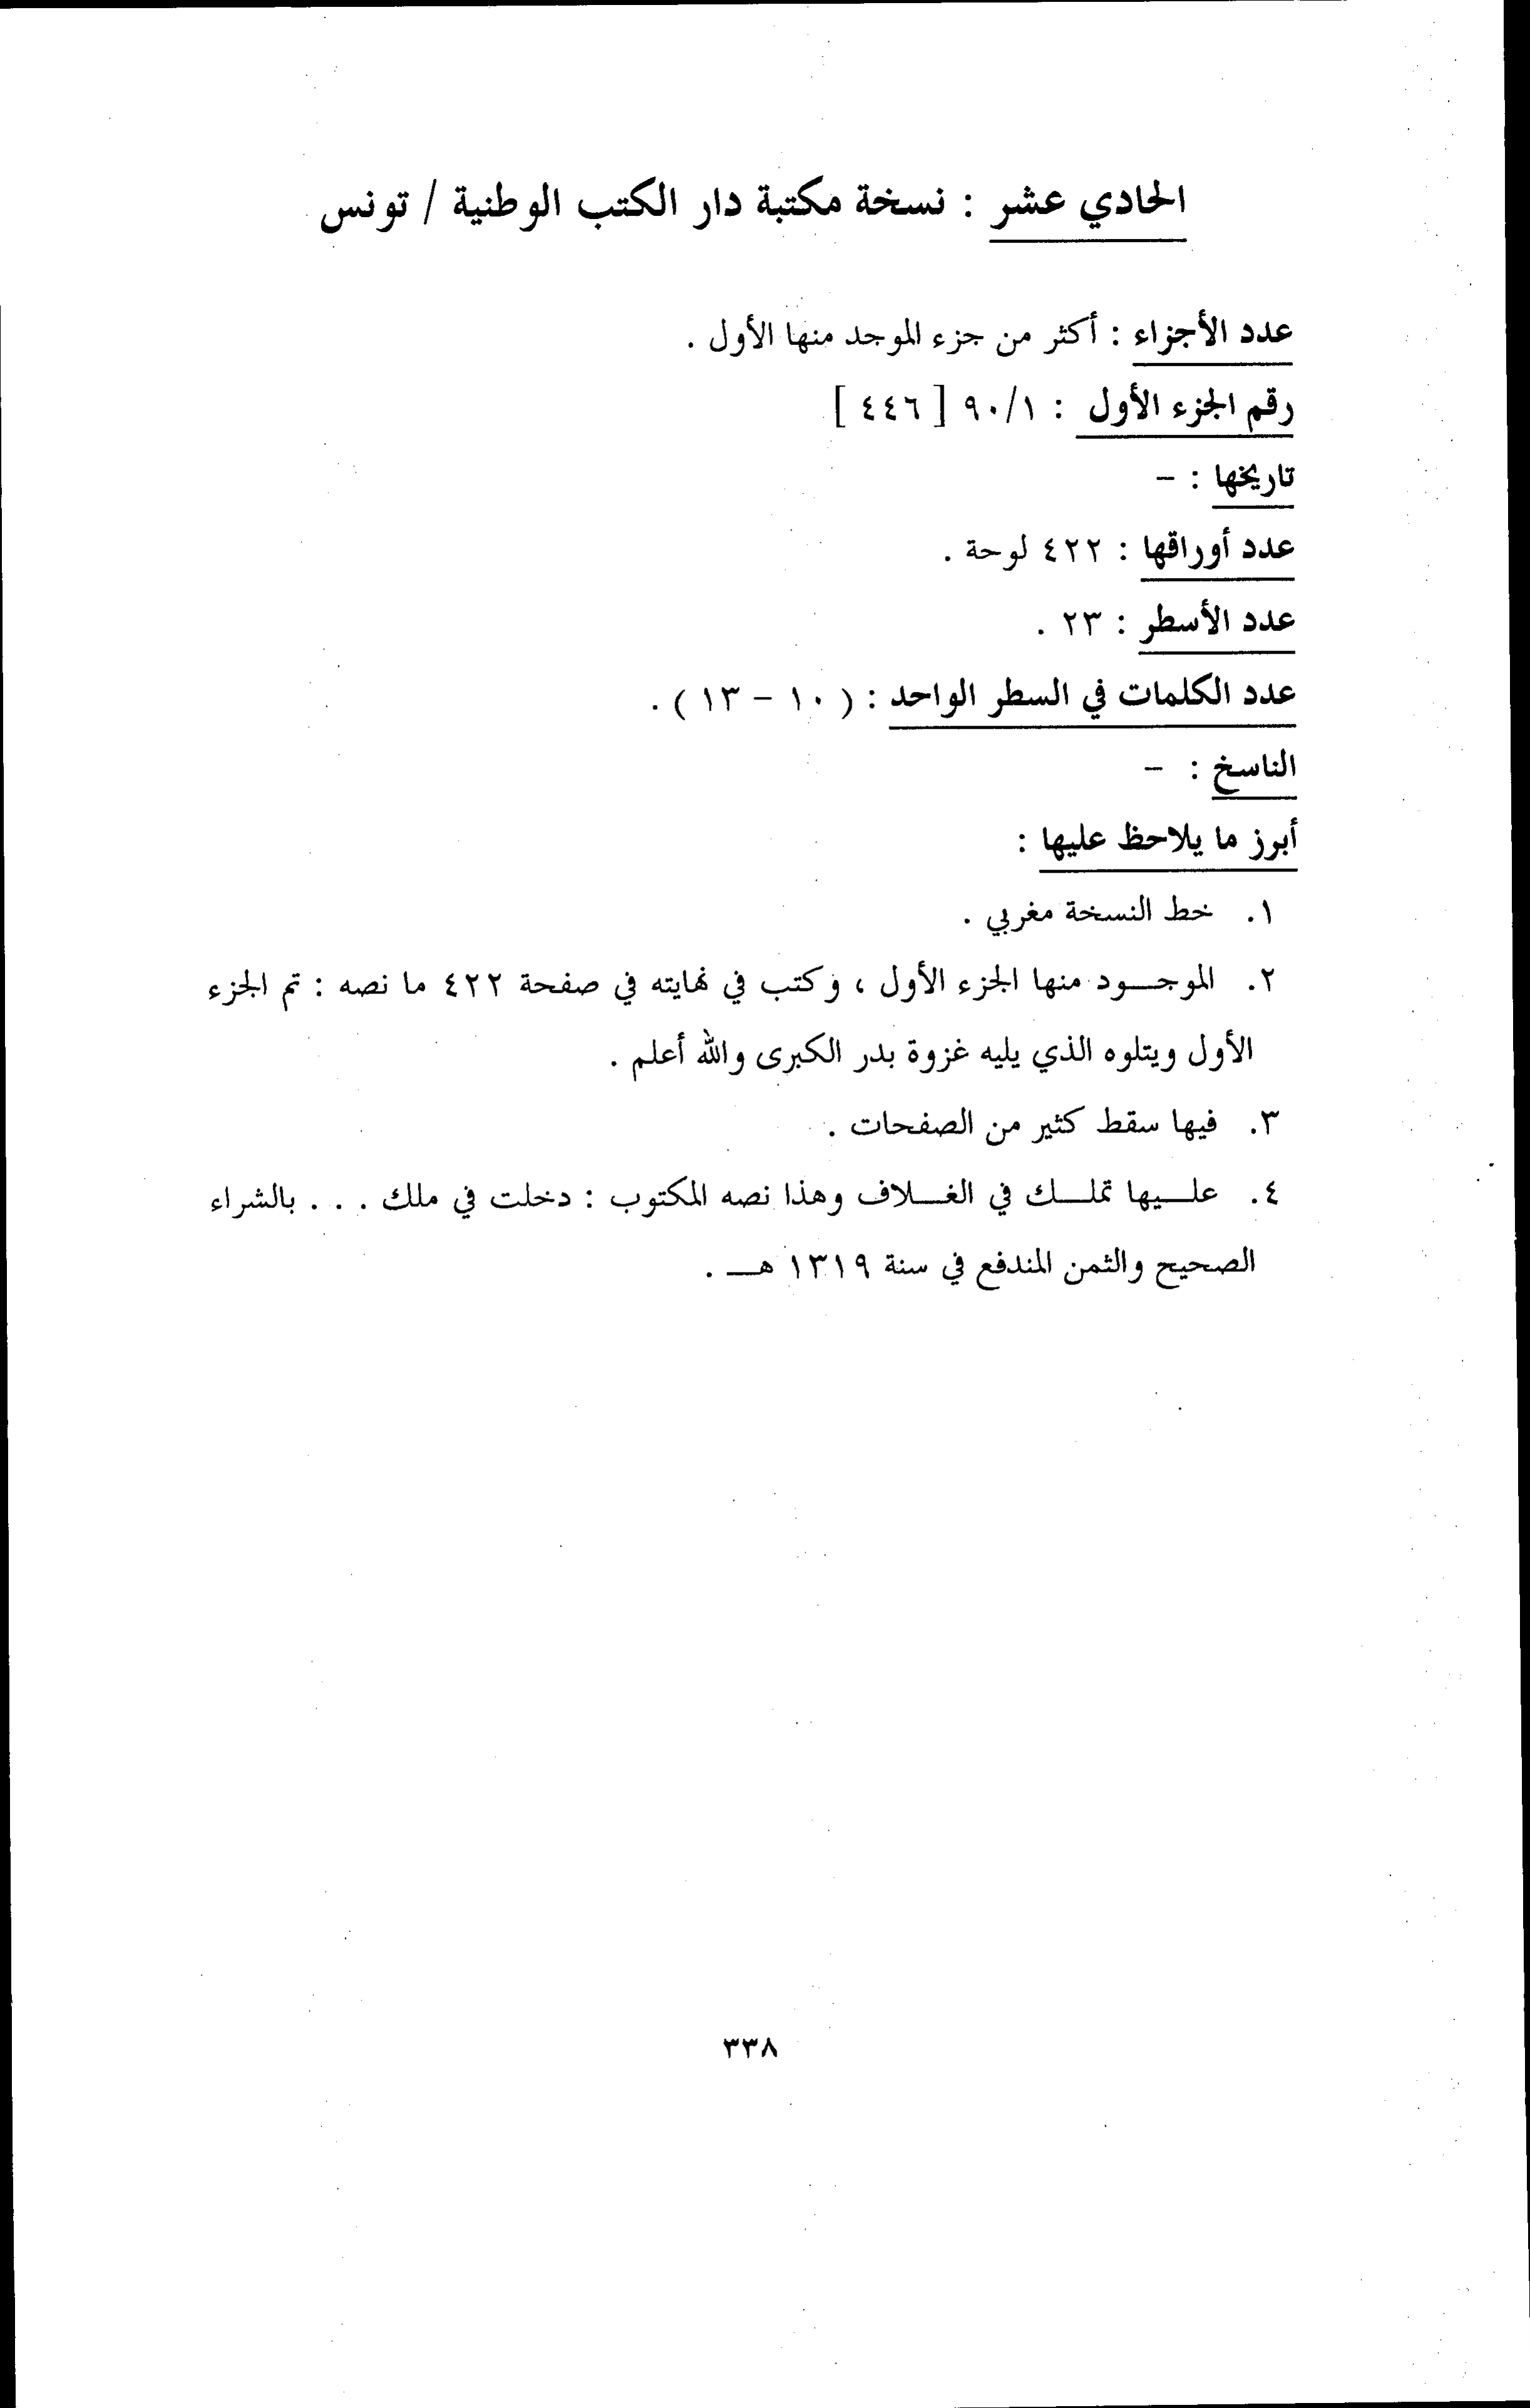 الحادي عشر : نسخة مكتبة دار الكتب الوطنية / تونس
عدد الأجزاء : أكثر من جزء الموجد منها الأول .
رقم الجزء الأول : ٩٠/١ [ ٤٤٦ ]
تاريخها : –
عدد أوراقها : ٤٢٢ لوحة .
عدد الأسطر : ٢٣ .
عدد الكلمات في السطر الواحد : ( ١٠ – ١٣ ) .
الناسخ : –
أبرز ما يلاحظ عليها :
١. خط النسخة مغربي .
٢. الموجـــود منها الجزء الأول ، وكتب في نهايته في صفحة ٤٢٢ ما نصه : تم الجزء
الأول ويتلوه الذي يليه غزوة بدر الكبرى والله أعلم .
٣. فيها سقط كثير من الصفحات .
٤. علـــيها تملـــك في الغـــلاف وهذا نصه المكتوب : دخلت في ملك . . . بالشراء
الصحيح والثمن المندفع في سنة ١٣١٩ هـــ .
٣٣٨